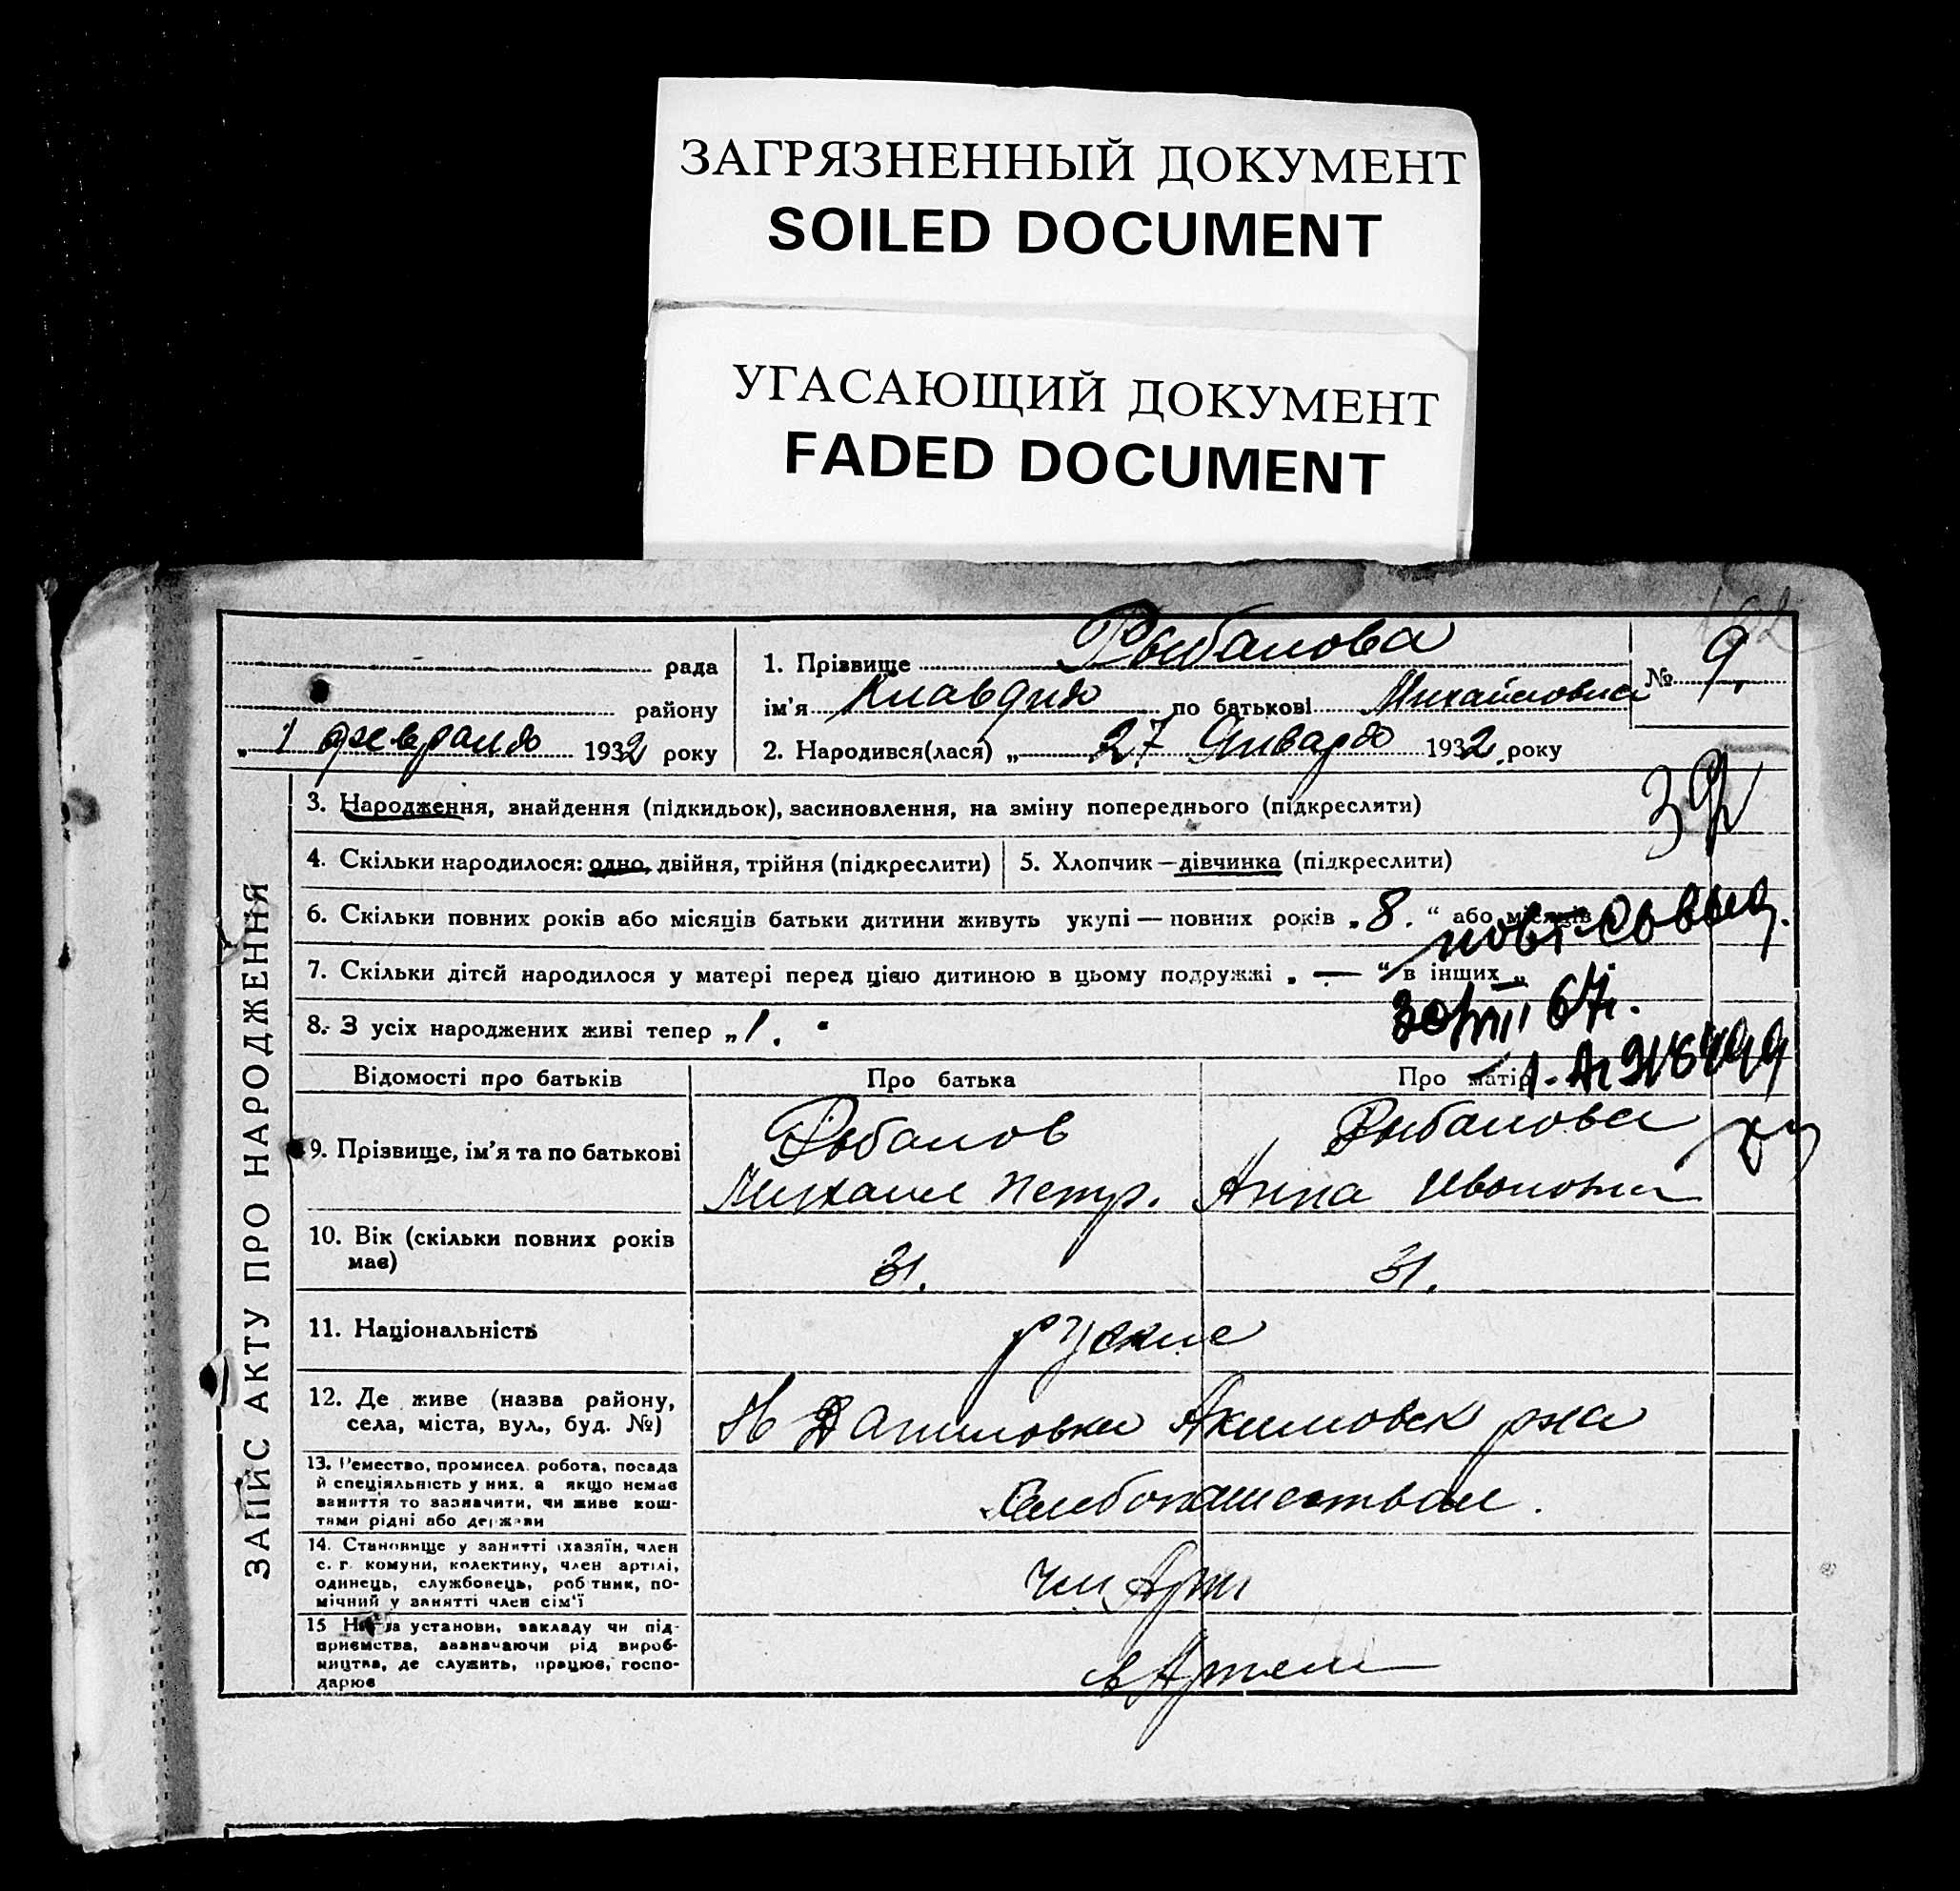 ЗАГРЯЗНЕННЫЙ ДОКУМЕНТ
SOILED DOCUMENT
УГАСАЮЩИЙ ДОКУМЕНТ
FADED DOCUMENT
рада
району
„ 1 февраля 1932 року
1. Прізвище Рыбалова
ім'я Клавдия по батькові Михайловна
2. Народився(лася) „ 27 Января 1932. року
№ 9.
39
ЗАПИС АКТУ ПРО НАРОДЖЕННЯ
3. Народження, знайдення (підкидьок), засиновлення, на зміну попереднього (підкреслити)
4. Скільки народилося: одно, двійня, трійня (підкреслити)
5. Хлопчик — дівчинка (підкреслити)
6. Скільки повних років або місяців батьки дитини живуть укупі — повних років „ 8. “ або місяців
7. Скільки дітєй народилося у матері перед цією дитиною в цьому подружжі „ — “ в інших „
8. З усіх народжених живі тепер „ 1.
Відомості про батьків Про батька Про матір
9. Прізвище, ім'я та по батькові
Рыбалов
Михаил Петр.
Рыбалова
Анна Ивановна
10. Вік (скільки повних років
має)
31. 31.
11. Національність
руские
12. Де живе (назва району,
села, міста, вул., буд. №)
Н Даниловка Акимовск рна
13. Ремество, промисел. робота, посада
й спеціяльність у них, а якщо немає
заняття то зазначити, чи живе кош-
тами рідні або держави
Хлебопашеством.
14. Становище у занятті (хазяїн, член
с. г. комуни, колективу, член артілі,
одинець, службовець, робітник, по-
мічний у занятті член сім'ї
чл Арт
15 Назва установи, закладу чи під-
приємства, зазначаючи рід вироб-
ництва, де служить, працює, госпо-
дарює
в Артели